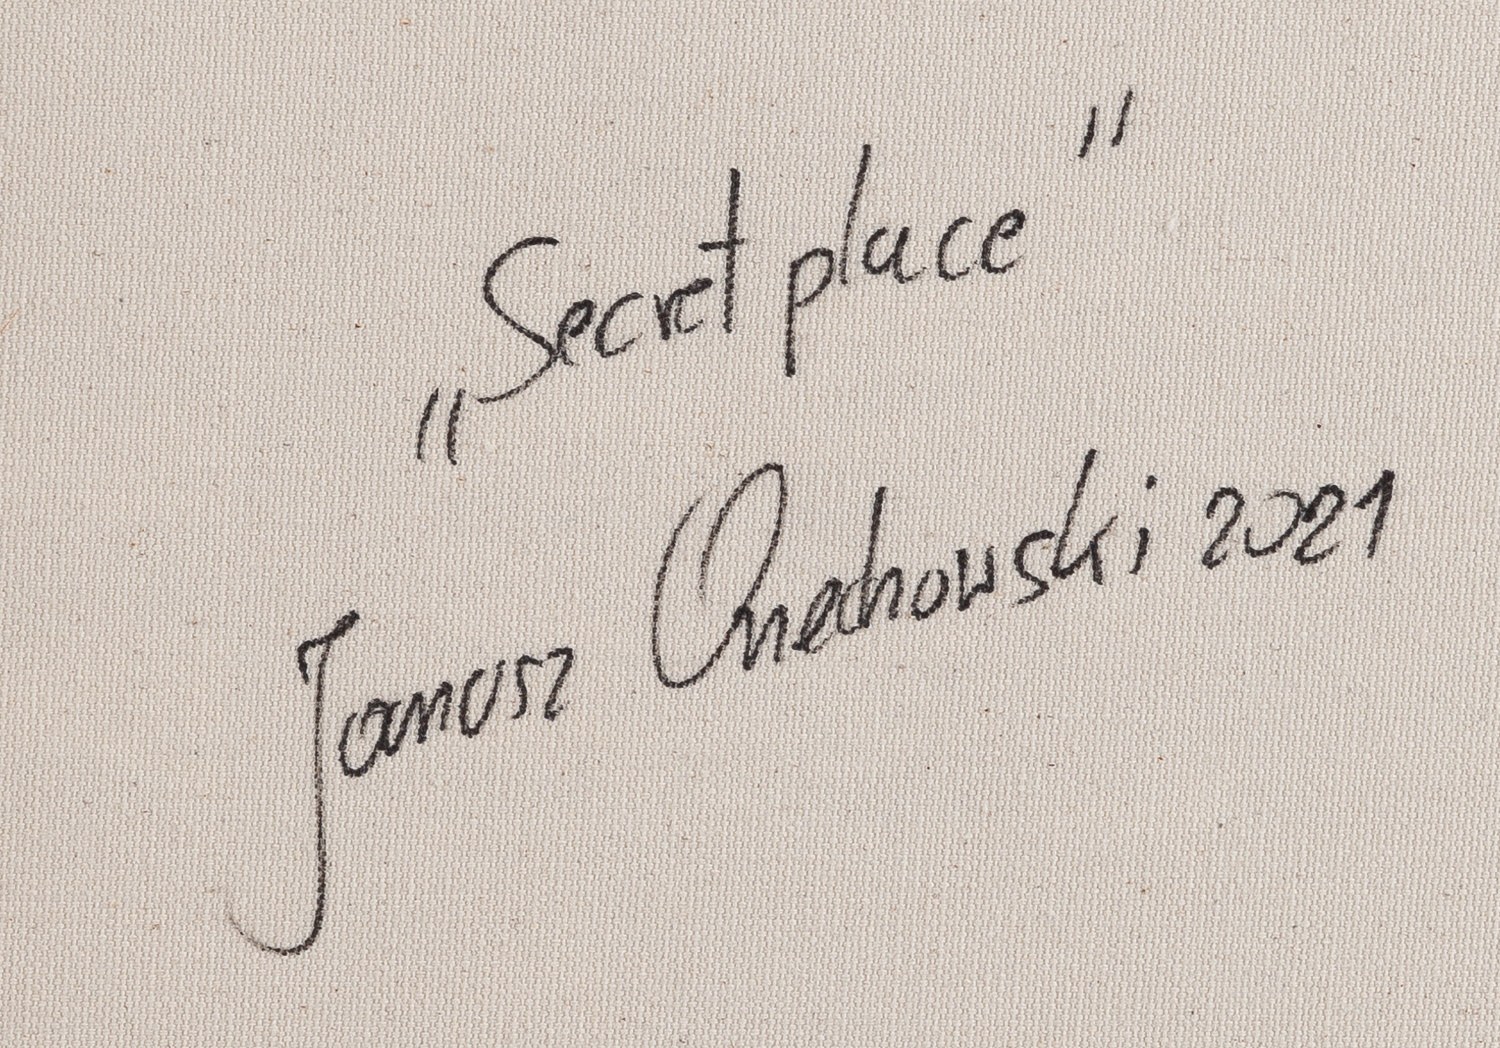 „Secret place"
Janusz Orzechowski 2021